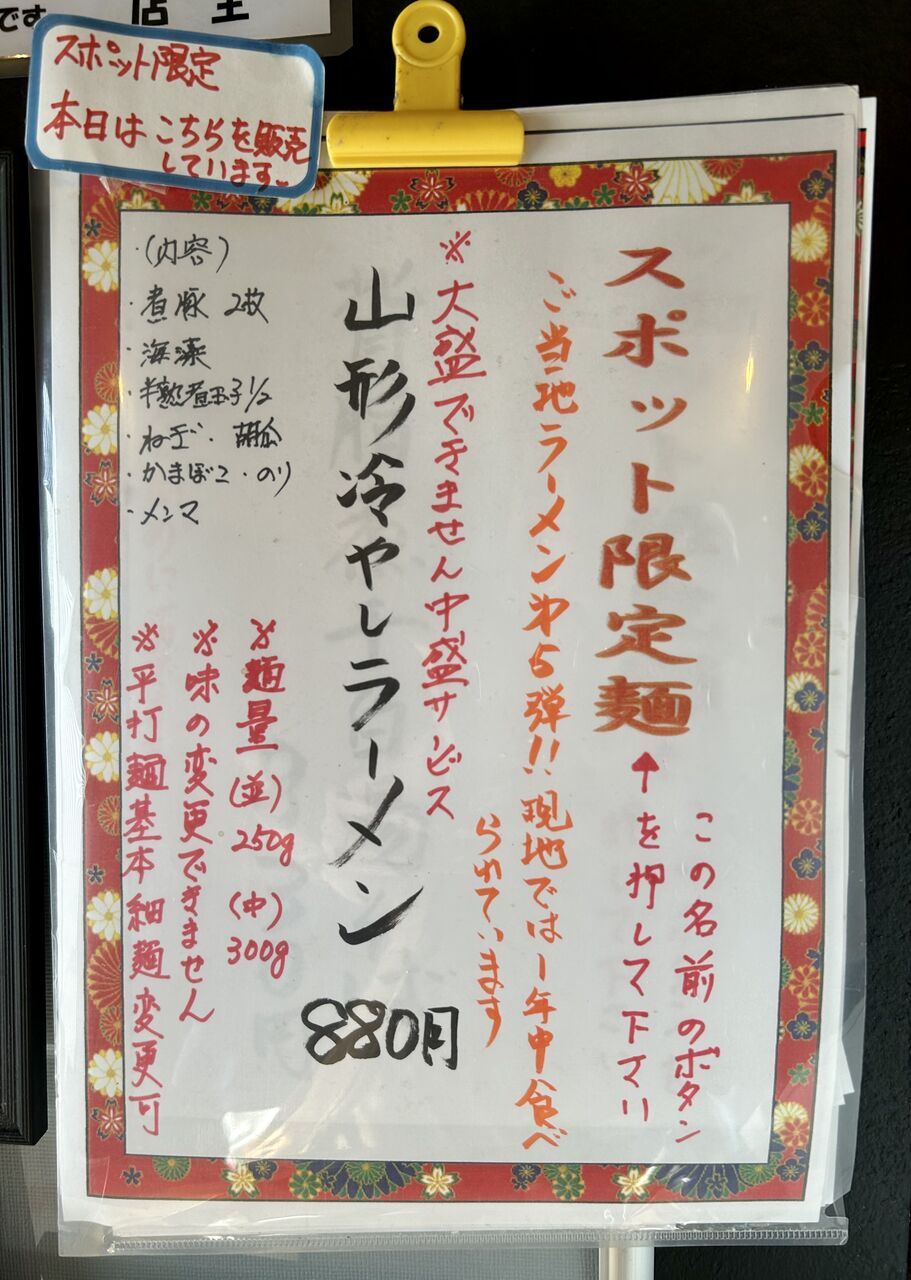 です 店主
スポット限定
本日はこちらを販売
しています
スポット限定麺
↑この名前のボタン
を押して下さい
ご当地ラーメン第5弾!!現地では1年中食べ
られています
※大盛できません中盛サービス
山形冷やしラーメン
880円
・(内容)
・煮豚 2枚
・海藻
・半熟煮玉子1/2
・ねぎ・胡瓜
・かまぼこ・のり
・メンマ
※麺量(並)250g (中)300g
※味の変更できません
※平打麺基本細麺変更可